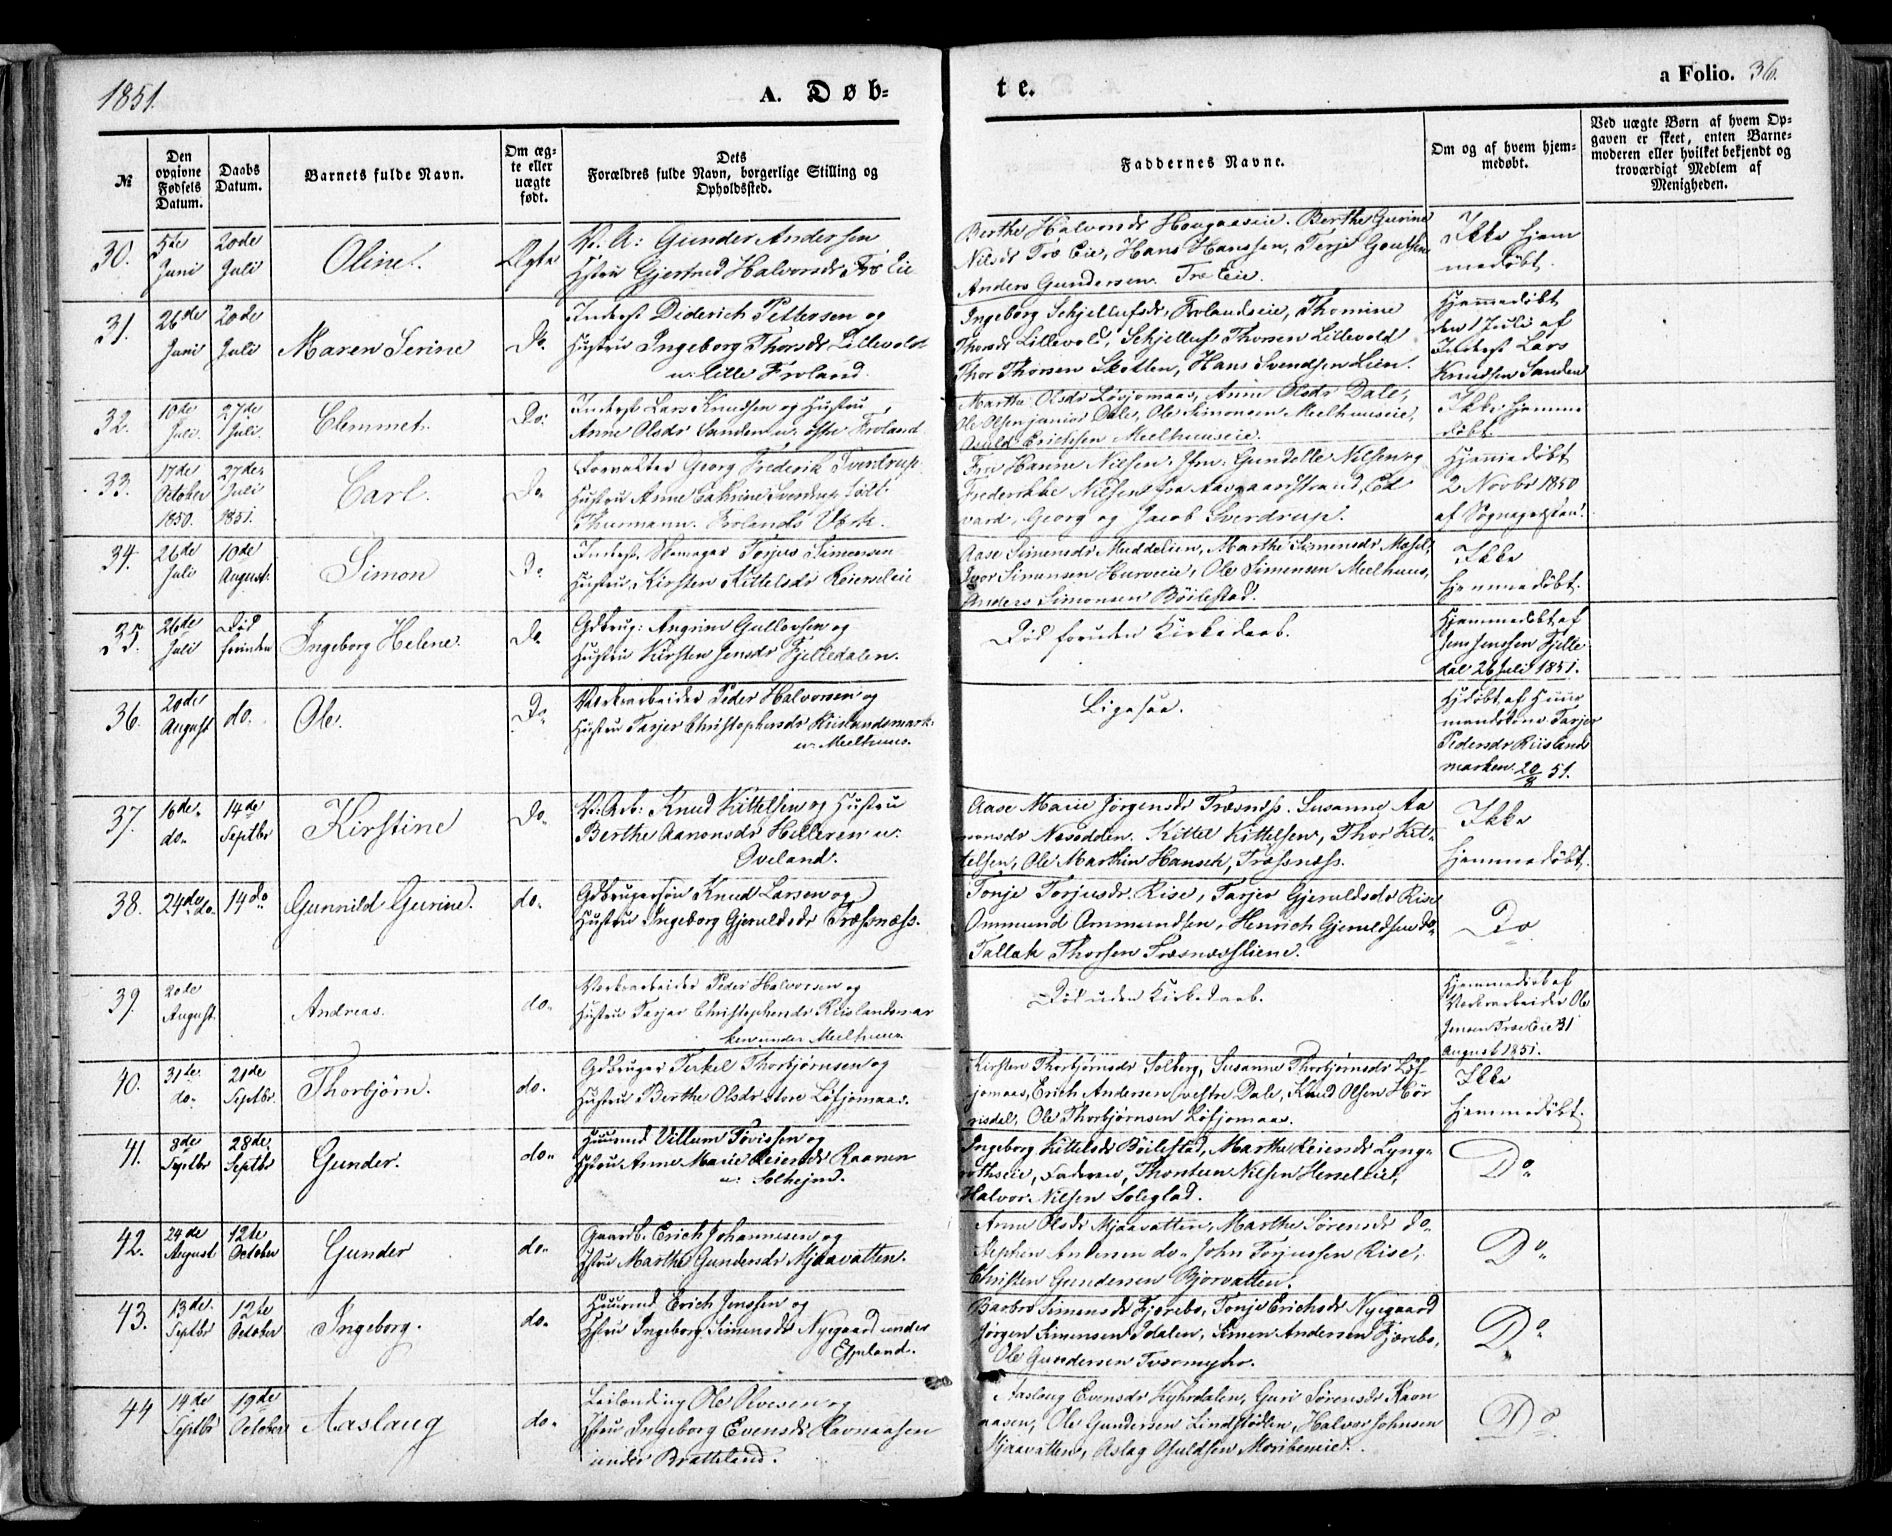 1851.
A. Døb-
te.
a Folio. 36.
№
Den opgivne Fødsels Datum.
Daabs Datum.
Barnets fulde Navn.
Om ægte eller uægte født.
Dets Forældres fulde Navn, borgerlige Stilling og Opholdssted.
Faddernes Navne.
Om og af hvem hjemmedøbt.
Ved uægte Børn af hvem Opgaven er skeet, enten Barnemoderen eller hvilket bekjendt og troværdigt Medlem af Menigheden.
30.
5te Juni
20de Juli
Oline.
Ægte
V. A: Gunder Andersen
Hstru Gjertrud Halvorsdr Træ Eie
Berthe Halvorsdr Hougaaseie. Berthe Gurine
Nilsdr Træ Eie, Hans Hanssen, Terje Goutsen
Anders Gundersen. Træ Eie.
Ikke hjem
medøbt.
31.
26de Juni
20de Juli
Maren Serine
Do.
Inderst Diderich Pettersen og
Hustru Ingeborg Thorsdr Lillevold
u. Lille Froland.
Ingeborg Schjellufsdr Frolandseie, Thomine
Thorsdr Lillevold, Schjelluf Thorsen Lillevold
Thor Thorsen Skotten, Hans Svendsen Lien.
Hjemmedøbt
den 1 Juli af
Inderst Lars
Knudsen Sanden
32.
10de Juli.
27de Juli.
Clemmet.
Do.
Inderst Lars Knudsen og Hustru
Anne Olsdr Sanden u. østre Froland
Marthe Olsdr Løvjomaas, Anne Olsdr Dale,
Ole Olsen junior Dale, Ole Simonsen Meelhuuseie,
Osuld Erichsen Meelhuuseie.
Ikke hjemme
døbt.
33.
17de October 1850.
27de Juli 1851.
Carl.
Do
Forvalter Georg Frederik Sverdrup
Hustru Anne Cathrine Sverdrup født
Thurmann. Frolands Værk.
Fru Hanne Nilsen. Jfm: Gundelle Nilsen og
Frederikke Nilsen fra Aasgaardstrand, Ed
vard, Georg og Jacob Sverdrup.
Hjemmedøbt
2 Novbr 1850
af Sognepresten.
34.
26de Juli
10de August.
Simon
Do
Inderst Skomager Torjus Simensen
Hustru, Kirsten Kittelsdr Reierseleie
Aase Simensdr Muddelien, Marthe Simensdr
Ivor Simensen Hurveeie, Ole Simensen Meelhuus,
Anders Simonsen Bøilestad.
Ikke
hjemmedøbt.
35.
26de Juli
Død forinden
Ingeborg Helene.
Do
Gdbrug: Angrim Gullovsen og
Hustru Kirsten Jensdr Fjelledalen.
Død foruden Kirkedaab.
Hjemmedøbt af
Jens Jenssen Fjelle
dal 26 Juli 1851.
36.
20de August
do.
Ole.
Do
Værksarbeider Peder Halvorsen og
Hustru Tarjer Christophersdr Riislandsmark.
u. Meelhuus.
Ligesaa.
Hjdøbt af Huus
mandskone Tarjer
Pedersdr Riislands
marken 20/8 51.
37.
16de do.
14de Septbr
Kirstine
Do
V: Arb: Knud Kittelsen og Hustru
Berthe Aanonsdr Helleren u.
Oveland.
Aase Marie Jørgensdr Træsnæss. Susanne Aa
nonsdr Næsodden. Kittel Kittelsen, Thor Kit-
telsen, Ole Marthin Hansen, Træssnæss.
Ikke
hjemmedøbt.
38.
24de do.
14 do
Gunnild Gurine.
do.
Gdbrugersøn Knud Larsen og
Hustru Ingeborg Gjeruldsdr Træssnæss.
Tonje Torjusdr. Rise, Tarjer Gjeruldsdr Rise
Ommund Ommundsen, Henrich Gjeruldsen do
Tallak Thorsen Træsnæsstiene.
Do
39.
20de August.
Andreas.
do.
Værksarbeider Peder Halvorsen og
Hustru Tarjer Christophersdr Riislandsmar
ken under Meelhuus.
Død uden Kirkedaab.
Hjemmedøbt af
Værksarbeider Ole
Jensen Træ Eie 31
August 1851.
40.
31te do.
21de Septbr.
Thorbjørn.
do.
Gdbruger Terkel Thorbjørnsen og
Hustru Berthe Olsdr store Løfjomaas.
Kirsten Thorbjørnsdr Solberg, Susanne Thorbjørnsdr Løf
jomaas, Erich Andersen vestre Dale, Knud Olsen Hør
risdal, Ole Thorbjørnsen Løfjomaas.
Ikke
hjemmedøbt.
41.
8de Septbr
28de Septbr
Gunder.
do.
Huusmd Villum Tovissen og
Hstru Anne Marie Reiersdr Raanen
u. Solhejmd.
Ingeborg Kittelsdr Bøilestad, Marthe Reiersdr Lyng-
rothseie, Faderen, Thorsteen Nilsen Herseleie,
Halvor Nilsen Soleglad.
Do
42.
24de August
12te October
Gunder
do.
Gaardb. Erich Johannesen og
Hstru Marthe Gundersdr Mjaavatten.
Anne Olsdr Mjaavatten, Marthe Sørensdr do.
Stephen Andersen do. John Torjussen Rise,
Christen Gundersen Bjorvatten.
Do
43.
13de Septbr
12te October
Ingeborg.
do.
Huusmd Erich Jenssen og
Hstru Ingeborg Simensdr Nyegaard under
Eppeland.
Barbro Simensdr Fjærebo, Tonje Erichsdr Nyegaard
Jørgen Simensen Idalen, Simen Andersen Fjærebo,
Ole Gundersen Tvesmyhr.
Do
44
14de Septbr
19de October
Aaslaug
do.
Leilending Ole Olvesen og
Hstru Ingeborg Evensdr Ravnaasen
under Bratteland.
Aaslaug Evensdr Kyhrdalen, Guri Sørensdr Ravn
aasen, Ole Gundersen Lindstødlen, Halvor Johnsen
Mjaavatten, Aslag Osuldsen Moribeneie.
Do